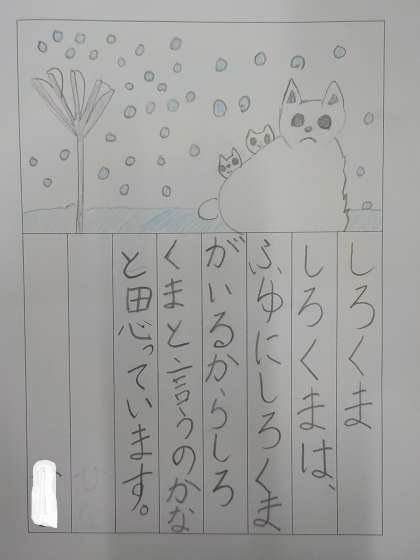 しろくま
しろくまは、
ふゆにしろくま
がいるからしろ
くまと言うのかな
と思っています。